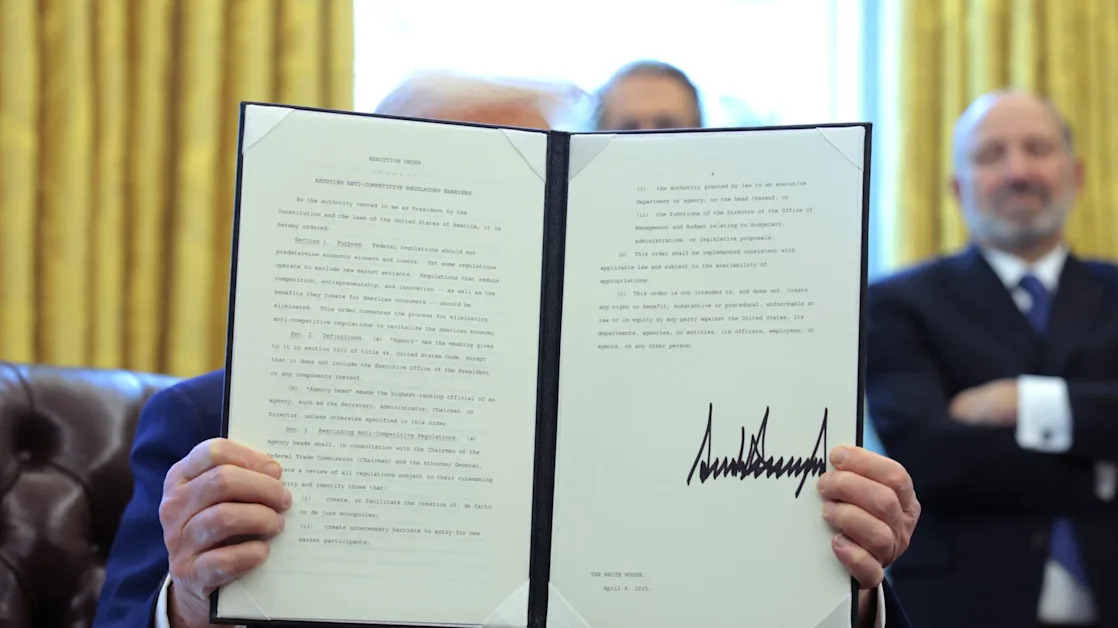 EXECUTIVE ORDER
- - - - - - -
REDUCING ANTI-COMPETITIVE REGULATORY BARRIERS
By the authority vested in me as President by the
Constitution and the laws of the United States of America, it is
hereby ordered:
Section 1. Purpose. Federal regulations should not
predetermine economic winners and losers. Yet some regulations
operate to exclude new market entrants. Regulations that reduce
competition, entrepreneurship, and innovation -- as well as the
benefits they create for American consumers -- should be
eliminated. This order commences the process for eliminating
anti-competitive regulations to revitalize the American economy.
Sec. 2. Definitions. (a) "Agency" has the meaning given
to it in section 3502 of title 44, United States Code, except
that it does not include the Executive Office of the President
or any components thereof.
(b) "Agency head" means the highest-ranking official of an
agency, such as the Secretary, Administrator, Chairman, or
Director, unless otherwise specified in this order.
Sec. 3. Rescinding Anti-Competitive Regulations. (a)
Agency heads shall, in consultation with the Chairman of the
Federal Trade Commission (Chairman) and the Attorney General,
a review of all regulations subject to their rulemaking
and identify those that:
(i) create, or facilitate the creation of, de facto
or de jure monopolies;
(ii) create unnecessary barriers to entry for new
market participants;
4
(i) the authority granted by law to an executive
department or agency, or the head thereof; or
(ii) the functions of the Director of the Office of
Management and Budget relating to budgetary,
administrative, or legislative proposals.
(b) This order shall be implemented consistent with
applicable law and subject to the availability of
appropriations.
(c) This order is not intended to, and does not, create
any right or benefit, substantive or procedural, enforceable at
law or in equity by any party against the United States, its
departments, agencies, or entities, its officers, employees, or
agents, or any other person.
THE WHITE HOUSE,
April 9, 2025.